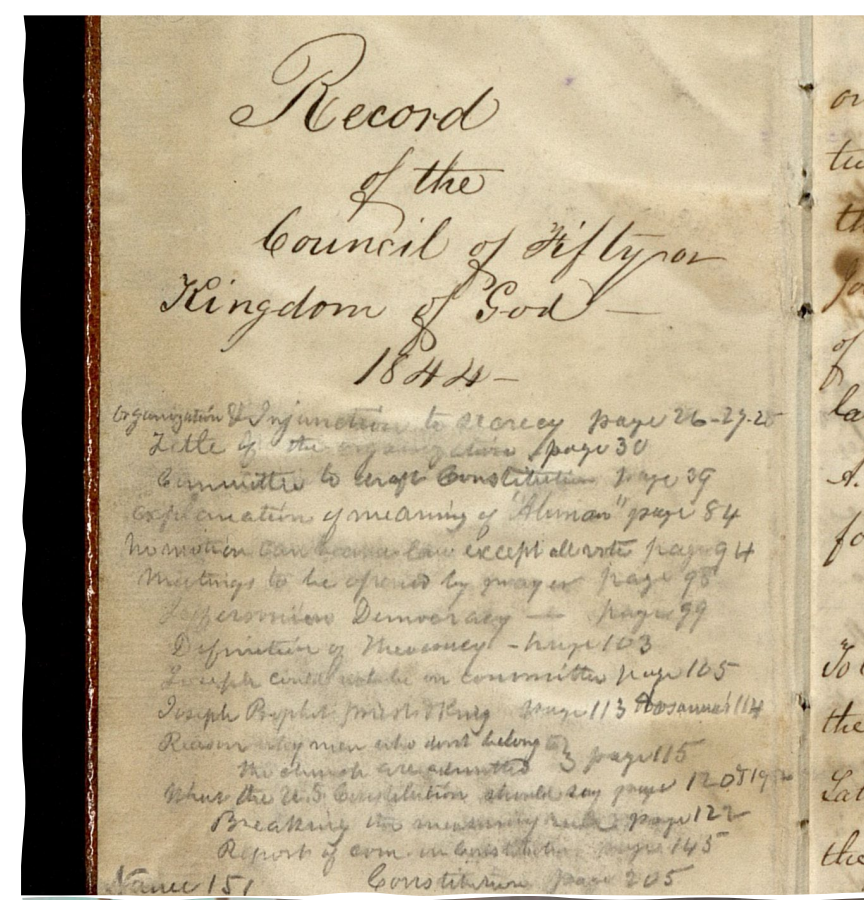 Record
of the
Council of Fifty or
Kingdom of God —
1844—
Organization & Injunction to secrecy page 26-27-28
Title of the organization page 30
Committee to draft Constitution page 39
Explanation of meaning of "Ahman" page 84
no motion can become law except all vote page 94
Meetings to be opened by prayer page 98
Jeffersonian Democracy — page 99
Definition of Theocracy - page 103
Joseph could not be on committee page 105
Joseph Prophet priest & King page 113 Hosanna! 114
Reason why men who dont belong to
the church are admitted page 115
What the U.S Constitution should say page 120
Breaking the page 122
Report of com. on Constitution page 145
Name 151 Constitution page 205
or
tu
th
of
la
A.
fo
To
the
Lat
the